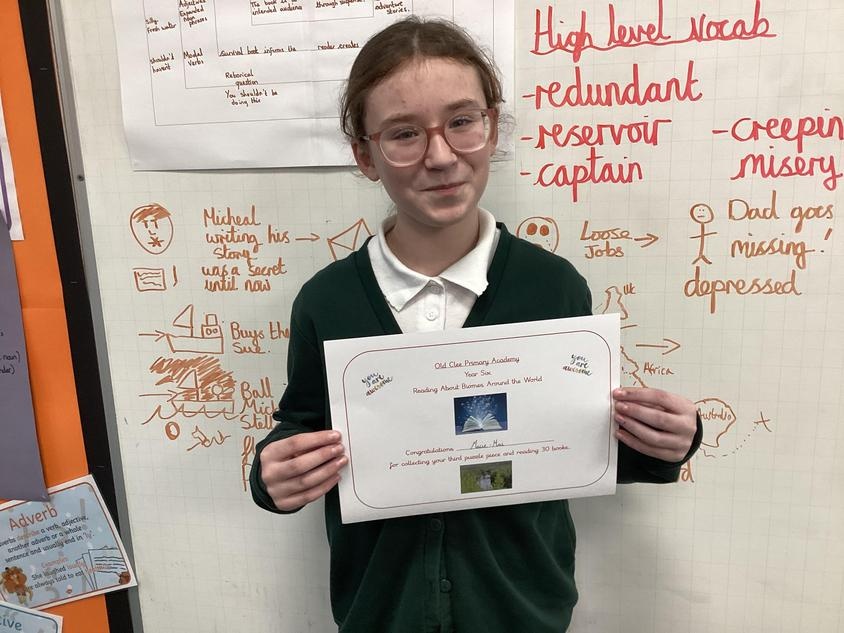 Silly
Fresh water
Adjectives
Expanded
noun
phrases
The book is
intended audience
through suspense.
adventure
stories.
shouldn't
haven't
Modal
Verbs
survival book informs the reader creates
Rhetorical
question
You shouldn't be
doing this
High level vocab
-redundant
-reservoir
-captain
-creepin
misery
Micheal
writing his
story
was a secret
until now
Loose
Jobs
Dad goes
missing!
depressed
Buys the
Sue.
Ball
Mic
Stell
UK
Africa
Australia
Old Clee Primary Academy
Year Six
Reading About Biomes Around the World
you
are
awesome
you
are
awesome
Congratulations
for collecting your third puzzle piece and reading 30 books.
noun)
Adverb
adverbs describe a verb, adjective,
another adverb or a whole
sentence and usually end in 'ly'.
Examples
She laughed
always told to eat